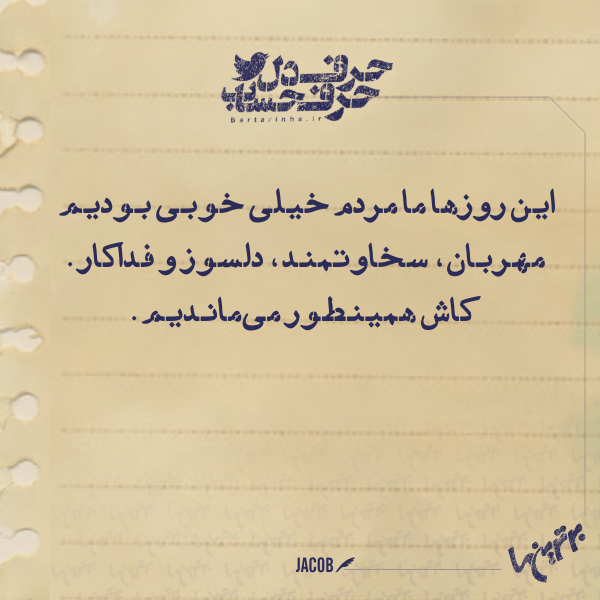 حرف دل
حرف حساب
Bartarinha.ir
این روزها ما مردم خیلی خوبی بودیم
مهربان، سخاوتمند، دلسوز و فداکار.
کاش همینطور می‌ماندیم.
JACOB
برترین‌ها